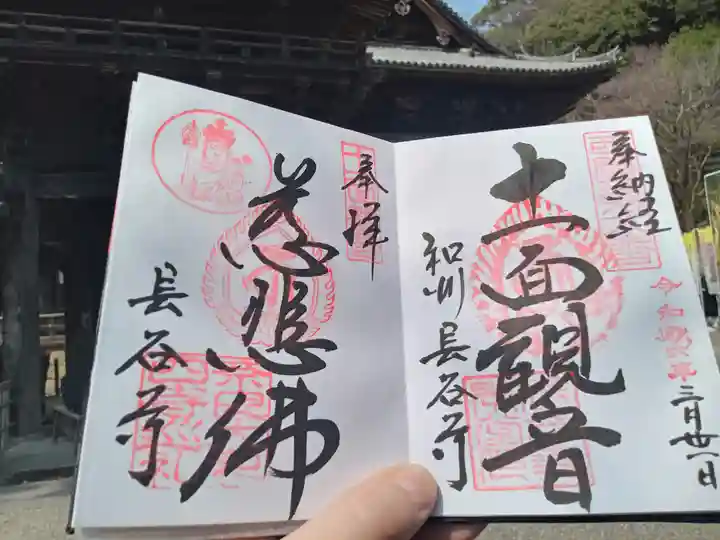 奉納経
令和
年三月廿一日
十一面觀音
和州長谷寺
奉拝
慈悲佛
長谷寺